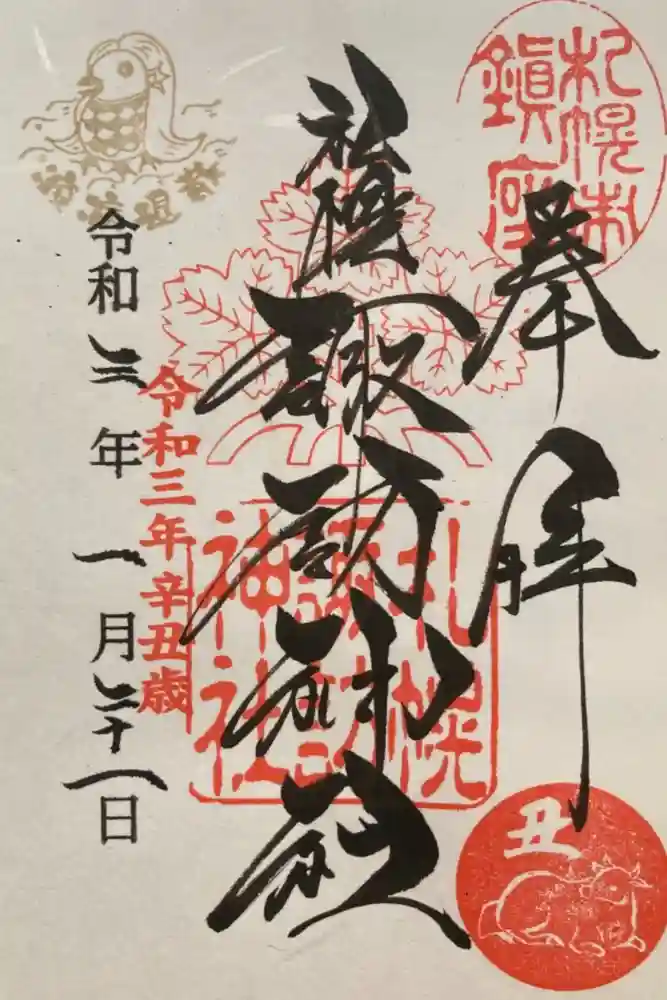 札幌市鎮座
奉拝
丑
札幌諏訪神社
札幌諏訪神社
令和三年辛丑歳
令和三年一月二十一日